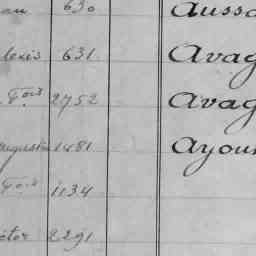 au 630 Aussa
lexis 631 Avag
Fois 2752 Avag
Augustin 1481 Ayou
Fois 1134
ctor 2291